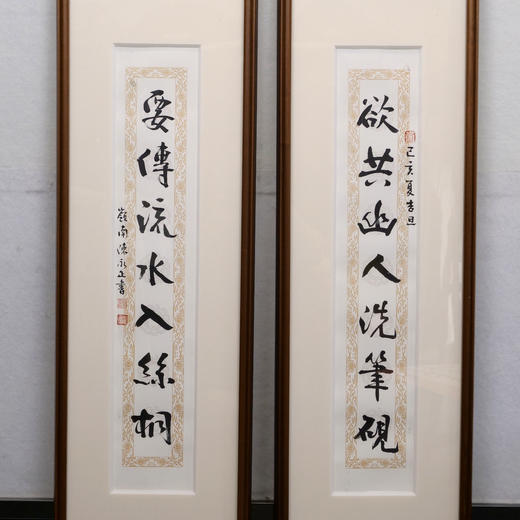 欲共幽人洗筆硯
己亥夏吉旦
要傳流水入絲桐
嶺南陳永正書